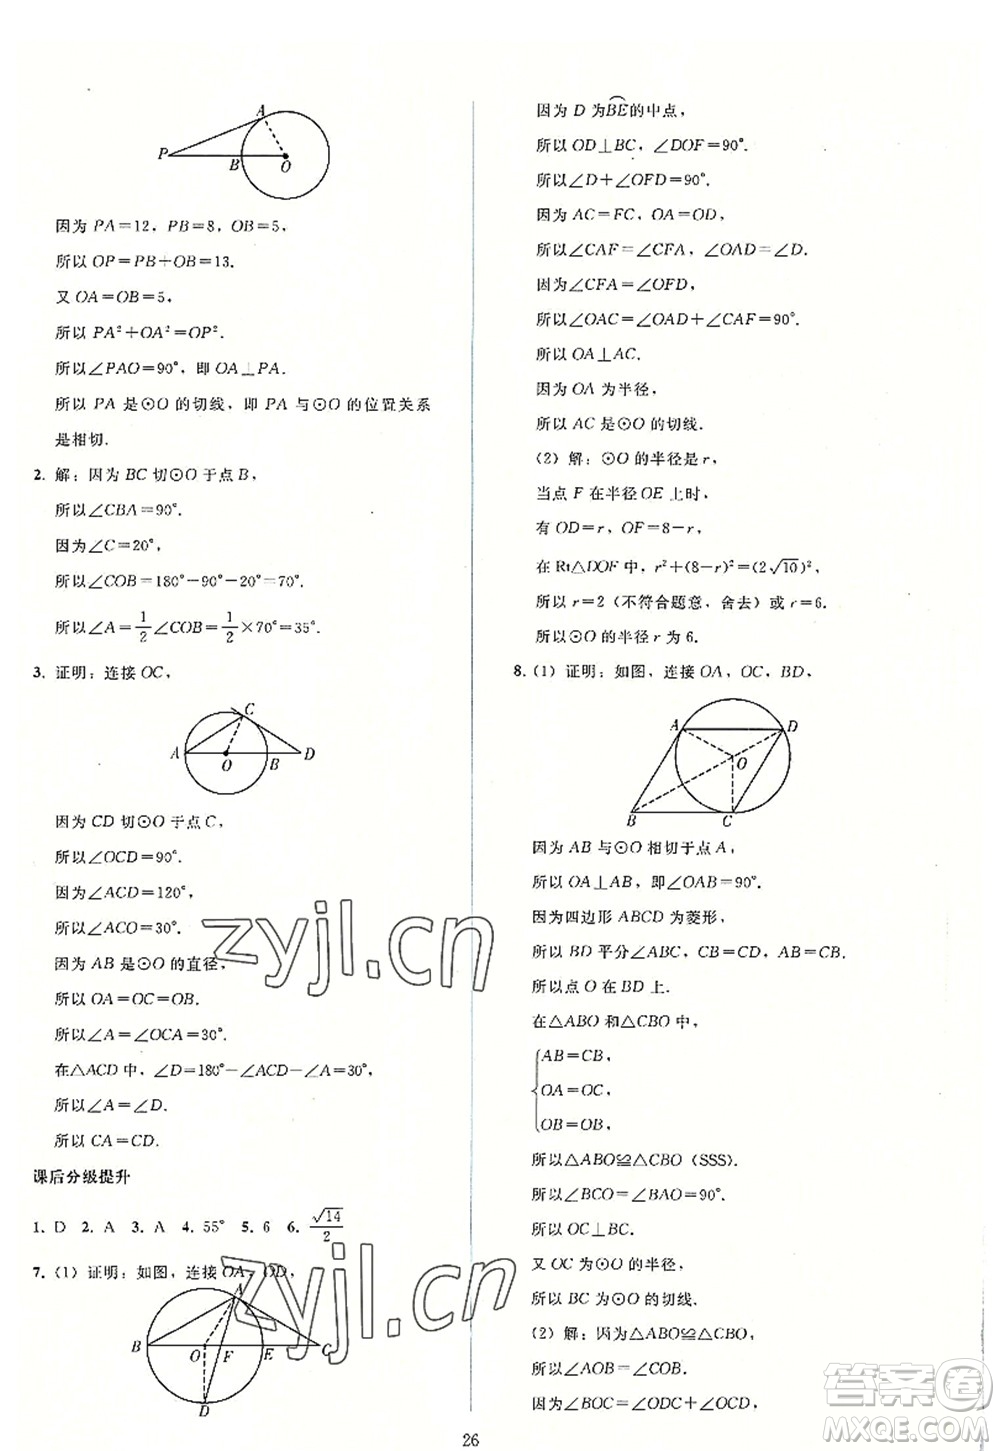 A
P
B
O
因为 PA=12，PB=8，OB=5，
所以 OP=PB+OB=13.
又 OA=OB=5，
所以 PA²+OA²=OP².
所以∠PAO=90°，即 OA⊥PA.
所以 PA 是⊙O 的切线，即 PA 与⊙O 的位置关系
是相切.
2. 解：因为 BC 切⊙O 于点 B，
所以∠CBA=90°.
因为∠C=20°，
所以∠COB=180°-90°-20°=70°.
所以∠A=1/2∠COB=1/2×70°=35°.
3. 证明：连接 OC，
C
A
O
B
D
因为 CD 切⊙O 于点 C，
所以∠OCD=90°.
因为∠ACD=120°，
所以∠ACO=30°.
因为 AB 是⊙O 的直径，
所以 OA=OC=OB.
所以∠A=∠OCA=30°.
在△ACD 中，∠D=180°-∠ACD-∠A=30°，
所以∠A=∠D.
所以 CA=CD.
课后分级提升
1. D 2. A 3. A 4. 55° 5. 6 6. √14/2
7. (1) 证明：如图，连接 OA，OD，
A
B
O
F
E
C
D
因为 D 为BE⌒的中点，
所以 OD⊥BC，∠DOF=90°.
所以∠D+∠OFD=90°.
因为 AC=FC，OA=OD，
所以∠CAF=∠CFA，∠OAD=∠D.
因为∠CFA=∠OFD，
所以∠OAC=∠OAD+∠CAF=90°.
所以 OA⊥AC.
因为 OA 为半径，
所以 AC 是⊙O 的切线.
(2) 解：⊙O 的半径是 r，
当点 F 在半径 OE 上时，
有 OD=r，OF=8-r，
在 Rt△DOF 中，r²+(8-r)²=(2√10)²，
所以 r=2（不符合题意，舍去）或 r=6.
所以⊙O 的半径 r 为 6.
8. (1) 证明：如图，连接 OA，OC，BD，
A
D
O
B
C
因为 AB 与⊙O 相切于点 A，
所以 OA⊥AB，即∠OAB=90°.
因为四边形 ABCD 为菱形，
所以 BD 平分∠ABC，CB=CD.
所以点 O 在 BD 上.
在△ABO 和△CBO 中，
AB=CB，
OA=OC，
OB=OB，
所以△ABO≌△CBO（SSS）.
所以∠BCO=∠BAO=90°.
所以 OC⊥BC.
又 OC 为⊙O 的半径，
所以 BC 为⊙O 的切线.
(2) 解：因为△ABO≌△CBO，
所以∠AOB=∠COB.
因为∠BOC=∠CBD+∠OCD，
26
zyjl.cn
zyjl.cn
答案圈
MXQE.COM